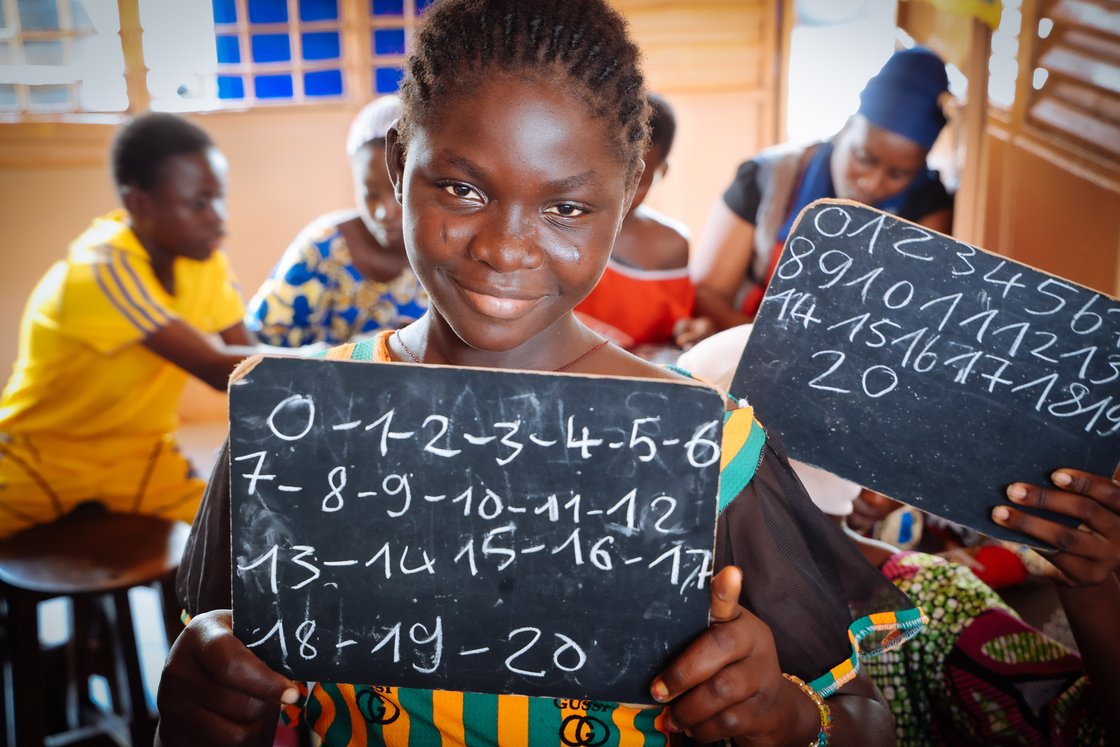 0-1-2-3-4-5-6
7-8-9-10-11-12
13-14 15-16-17
18-19-20
GUSSI
GUSSI
0 1 2 3 4 5 6
8 9 10 11 12 13
14 15 16 17 18 19
20